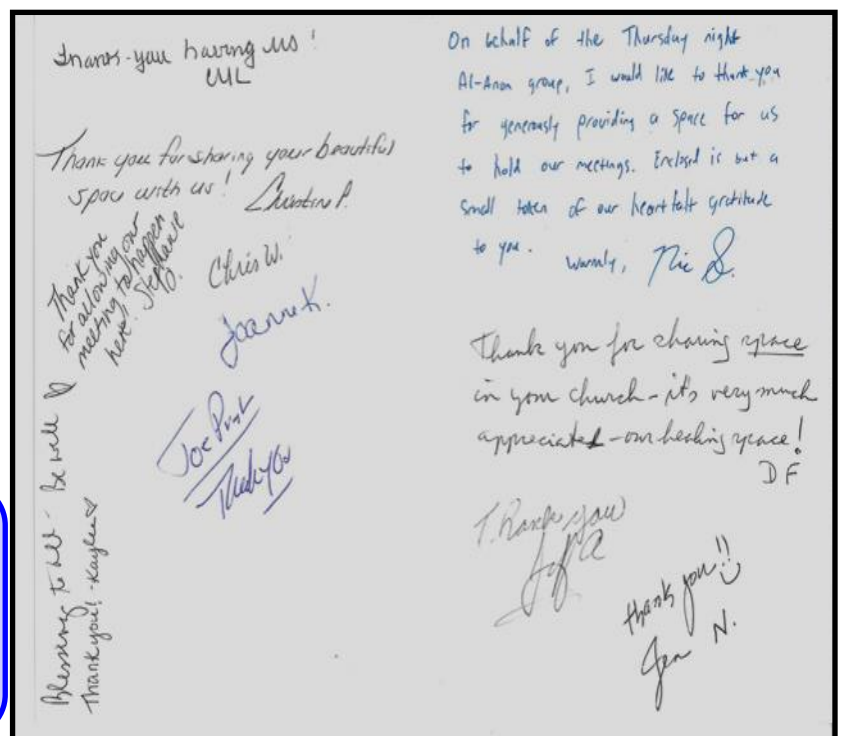 Thank-you having us!
Thank you for sharing your beautiful
space with us! Christine P.
Thank you
for allowing our
meeting to happen
here! Stephanie
D.
Chris W.
Joanne K.
Joe
Thank you
Blessing to all - Be well ♡
Thank you! -Kaylee ♡
On behalf of the Thursday night
Al-Anon group, I would like to thank you
for generously providing a space for us
to hold our meetings. Enclosed is but a
small token of our heartfelt gratitude
to you. Warmly, Nic D.
Thank you for sharing space
in your church - it's very much
appreciated - our healing space!
DF
Thank you
thank you!!
Jen N.